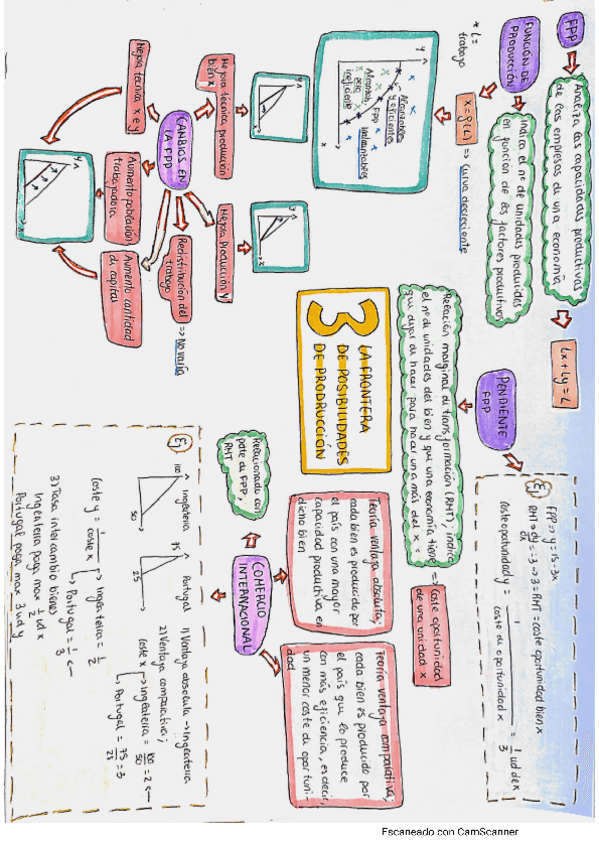 FPP
Analiza las capacidades productivas
de las empresas de una economía
Lx + Ly = L
FUNCIÓN DE
PRODUCCIÓN
indica el nº de unidades producidas
en función de los factores productivos
* L =
trabajo
x = f(L)
=> curva decreciente
y
Alcanzables
y eficientes
Inalcanzables
FPP
Alcanzab.
pero
ineficiente
x
CAMBIOS EN
LA FPP
Mejora técnica producción
bien x
Mejora producción y
Mejora técnica x e y
Aumento población
trabajadora
Aumento cantidad
de capital
Redistribución del
trabajo
=> No varía
y
x
3
LA FRONTERA
DE POSIBILIDADES
DE PRODRUCCIÓN
PENDIENTE
FPP
Relación marginal de transformación (RMT), indica
el nº de unidades del bien y que una economía tiene
que dejar de hacer para hacer una más del x =
=> Coste oportunidad
de una unidad x
Ej
FPP => y = 15 - 3x
RMT => dy = -3 => 3 = RMT = coste oportunidad bien x
dx
coste oportunidad y =
coste de oportunidad x
= 1/3 ud de x
COMERCIO
INTERNACIONAL
Relacionado con
pdte de FPP,
RMT
Teoría ventaja absoluta;
cada bien es producido por
el país con una mayor
capacidad productiva en
dicho bien
Teoría ventaja comparativa;
cada bien es producido por
el país que lo produce
con más eficiencia, es decir,
un menor coste de oportuni-
dad
Ej
Inglaterra
100
50
Portugal
75
25
1) Ventaja absoluta -> Inglaterra
2) Ventaja comparativa;
Coste x -> Inglaterra = 100/50 = 2 <-
Portugal = 75/25 = 3
Coste y = 1/coste x -> Inglaterra = 1/2
Portugal = 1/3 <-
3) Tasa intercambio bienes
Inglaterra paga max 1/2 ud x
Portugal paga max 3 ud y
Escaneado con CamScanner